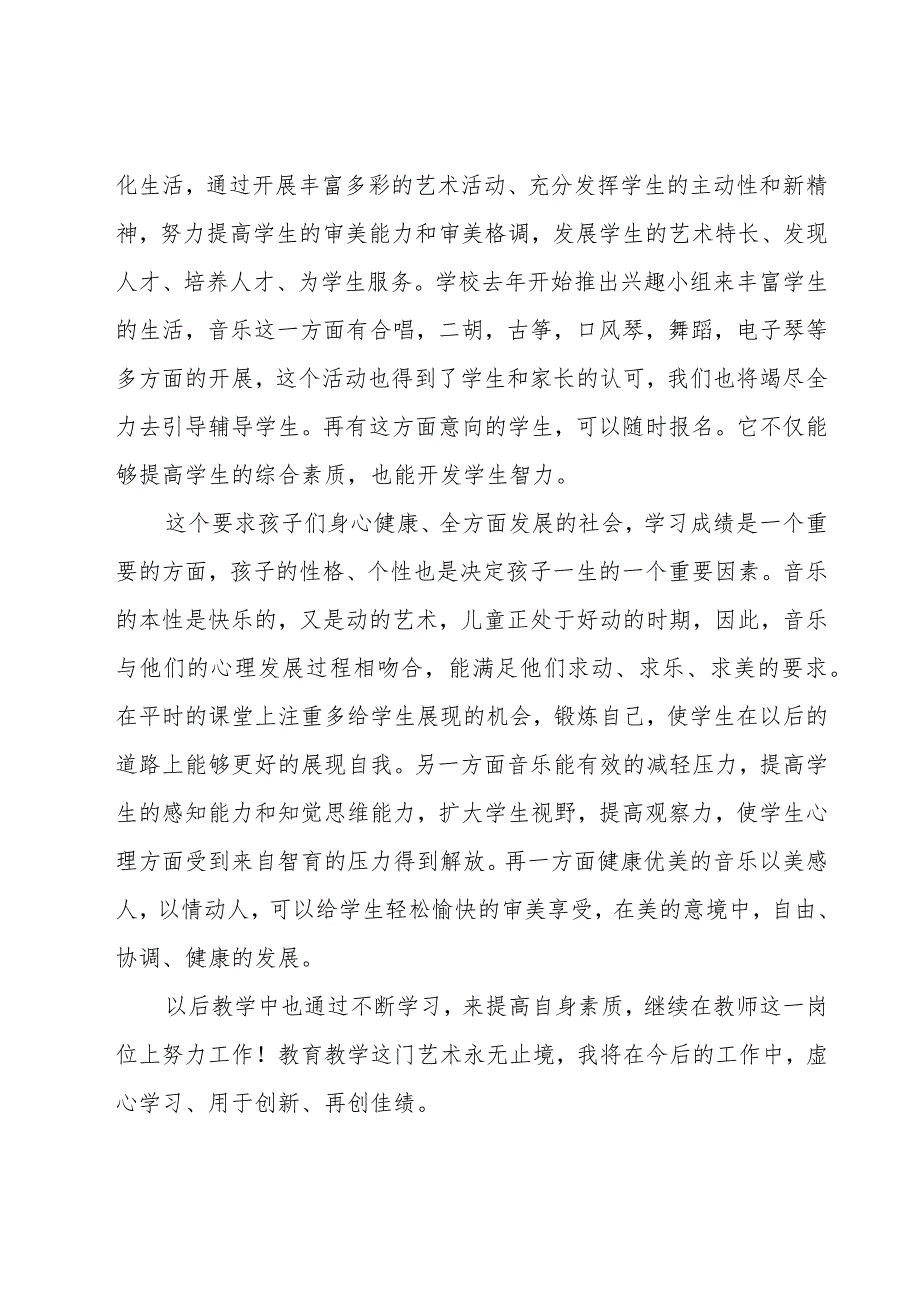 化生活，通过开展丰富多彩的艺术活动、充分发挥学生的主动性和新精
神，努力提高学生的审美能力和审美格调，发展学生的艺术特长、发现
人才、培养人才、为学生服务。学校去年开始推出兴趣小组来丰富学生
的生活，音乐这一方面有合唱，二胡，古筝，口风琴，舞蹈，电子琴等
多方面的开展，这个活动也得到了学生和家长的认可，我们也将竭尽全
力去引导辅导学生。再有这方面意向的学生，可以随时报名。它不仅能
够提高学生的综合素质，也能开发学生智力。
这个要求孩子们身心健康、全方面发展的社会，学习成绩是一个重
要的方面，孩子的性格、个性也是决定孩子一生的一个重要因素。音乐
的本性是快乐的，又是动的艺术，儿童正处于好动的时期，因此，音乐
与他们的心理发展过程相吻合，能满足他们求动、求乐、求美的要求。
在平时的课堂上注重多给学生展现的机会，锻炼自己，使学生在以后的
道路上能够更好的展现自我。另一方面音乐能有效的减轻压力，提高学
生的感知能力和知觉思维能力，扩大学生视野，提高观察力，使学生心
理方面受到来自智育的压力得到解放。再一方面健康优美的音乐以美感
人，以情动人，可以给学生轻松愉快的审美享受，在美的意境中，自由、
协调、健康的发展。
以后教学中也通过不断学习，来提高自身素质，继续在教师这一岗
位上努力工作！教育教学这门艺术永无止境，我将在今后的工作中，虚
心学习、用于创新、再创佳绩。